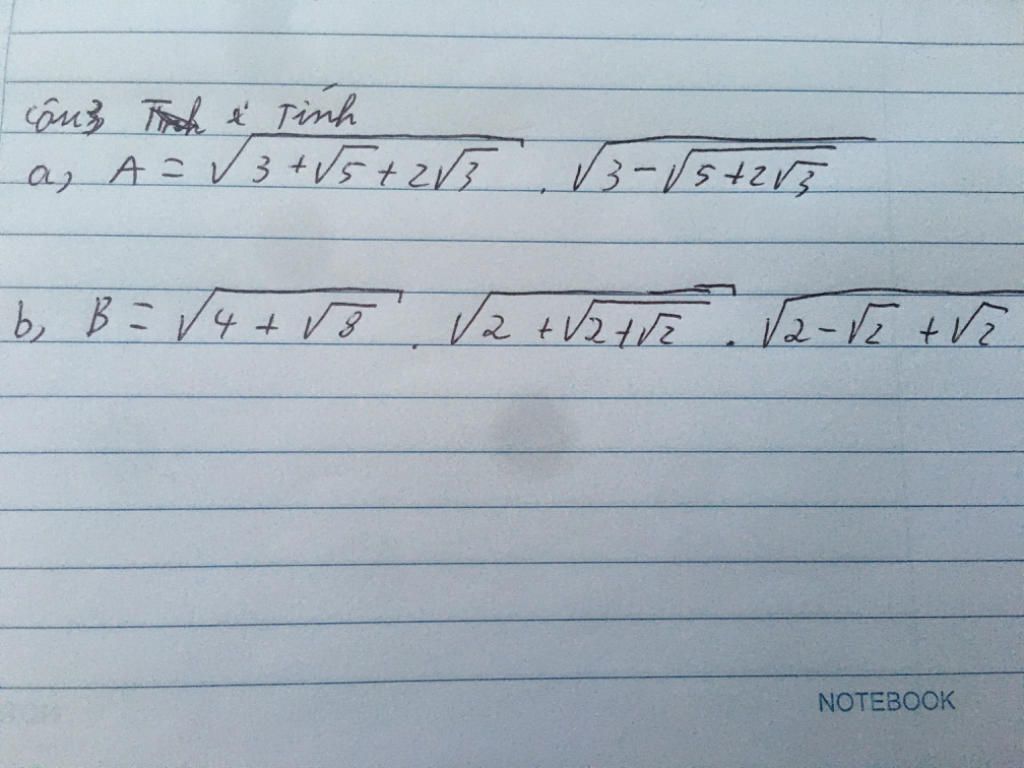 Câu 3, Tính : Tính
a, A = √(3 + √5 + 2√3) . √(3 - √(5 + 2√3))
b, B = √(4 + √8) . √(2 + √(2 + √2)) . √(2 - √2 + √2)
NOTEBOOK